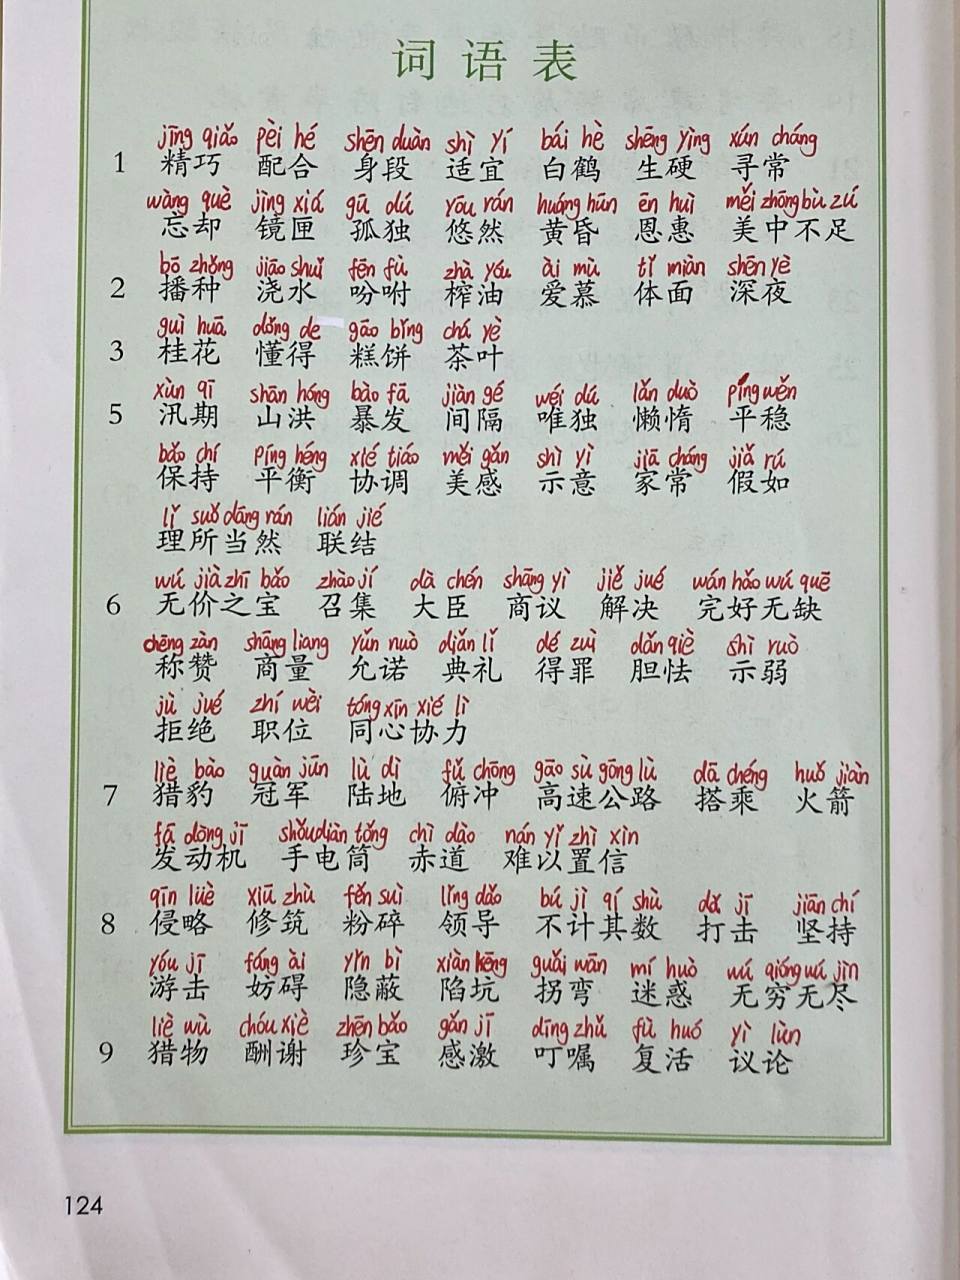 词语表
jīng qiǎo pèi hé shēn duàn shì yí bái hè shēng yìng xún cháng
1 精巧 配合 身段 适宜 白鹤 生硬 寻常
wàng què jìng xiá gū dú yōu rán huáng hūn ēn huì měi zhōng bù zú
忘却 镜匣 孤独 悠然 黄昏 恩惠 美中不足
bō zhǒng jiāo shuǐ fēn fù zhà yóu ài mù tǐ miàn shēn yè
2 播种 浇水 吩咐 榨油 爱慕 体面 深夜
guì huā dǒng de gāo bǐng chá yè
3 桂花 懂得 糕饼 茶叶
xùn qī shān hóng bào fā jiàn gé wéi dú lǎn duò píng wěn
5 汛期 山洪 暴发 间隔 唯独 懒惰 平稳
bǎo chí píng héng xié tiáo měi gǎn shì yì jiā cháng jiǎ rú
保持 平衡 协调 美感 示意 家常 假如
lǐ suǒ dāng rán lián jié
理所当然 联结
wú jià zhī bǎo zhào jí dà chén shāng yì jiě jué wán hǎo wú quē
6 无价之宝 召集 大臣 商议 解决 完好无缺
chēng zàn shāng liang yǔn nuò diǎn lǐ dé zuì dǎn qiè shì ruò
称赞 商量 允诺 典礼 得罪 胆怯 示弱
jù jué zhí wèi tóng xīn xié lì
拒绝 职位 同心协力
liè bào guàn jūn lù dì fǔ chōng gāo sù gōng lù dā chéng huǒ jiàn
7 猎豹 冠军 陆地 俯冲 高速公路 搭乘 火箭
fā dòng jī shǒu diàn tǒng chì dào nán yǐ zhì xìn
发动机 手电筒 赤道 难以置信
qīn lüè xiū zhù fěn suì lǐng dǎo bú jì qí shù dǎ jī jiān chí
8 侵略 修筑 粉碎 领导 不计其数 打击 坚持
yóu jī fáng ài yǐn bì xiàn kēng guǎi wān mí huò wú qióng wú jìn
游击 妨碍 隐蔽 陷坑 拐弯 迷惑 无穷无尽
liè wù chóu xiè zhēn bǎo gǎn jī dīng zhǔ fù huó yì lùn
9 猎物 酬谢 珍宝 感激 叮嘱 复活 议论
124